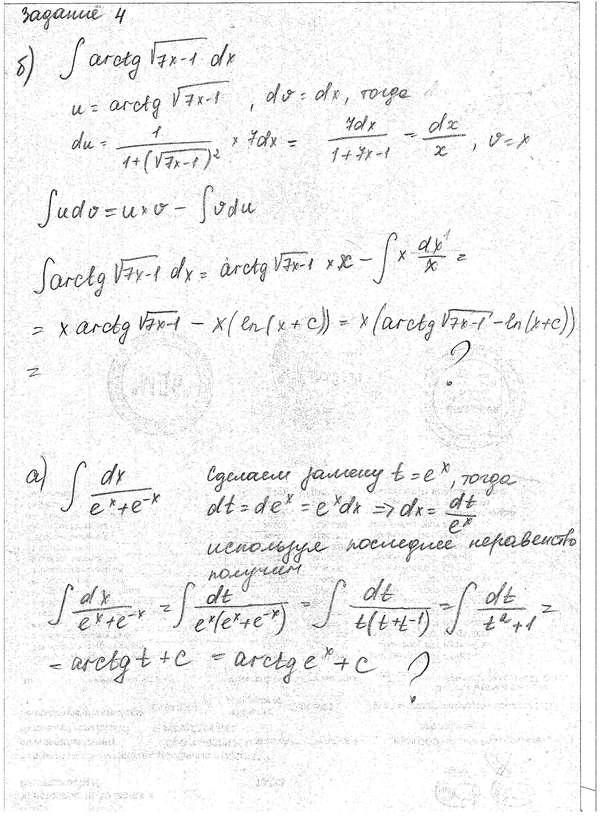 Задание 4
б) ∫ arctg √(7x-1) dx
u = arctg √(7x-1) , dv = dx, тогда
du = 1/(1+(√(7x-1))²) × 7dx = 7dx/(1+7x-1) = dx/x , v = x
∫udv = u×v - ∫vdu
∫arctg √(7x-1) dx = arctg √(7x-1) × x - ∫ x dx/x =
= x arctg √(7x-1) - x(ln(x+c)) = x(arctg √(7x-1) - ln(x+c))
= ?
а) ∫ dx/(e^x+e^-x) Сделаем замену t = e^x, тогда
dt = de^x = e^x dx ⇒ dx = dt/e^x
используя последнее неравенство
получим
∫ dx/(e^x+e^-x) = ∫ dt/(e^x(e^x+e^-x)) = ∫ dt/(t(t+t^-1)) = ∫ dt/(t²+1) =
= arctg t + c = arctg e^x + c ?